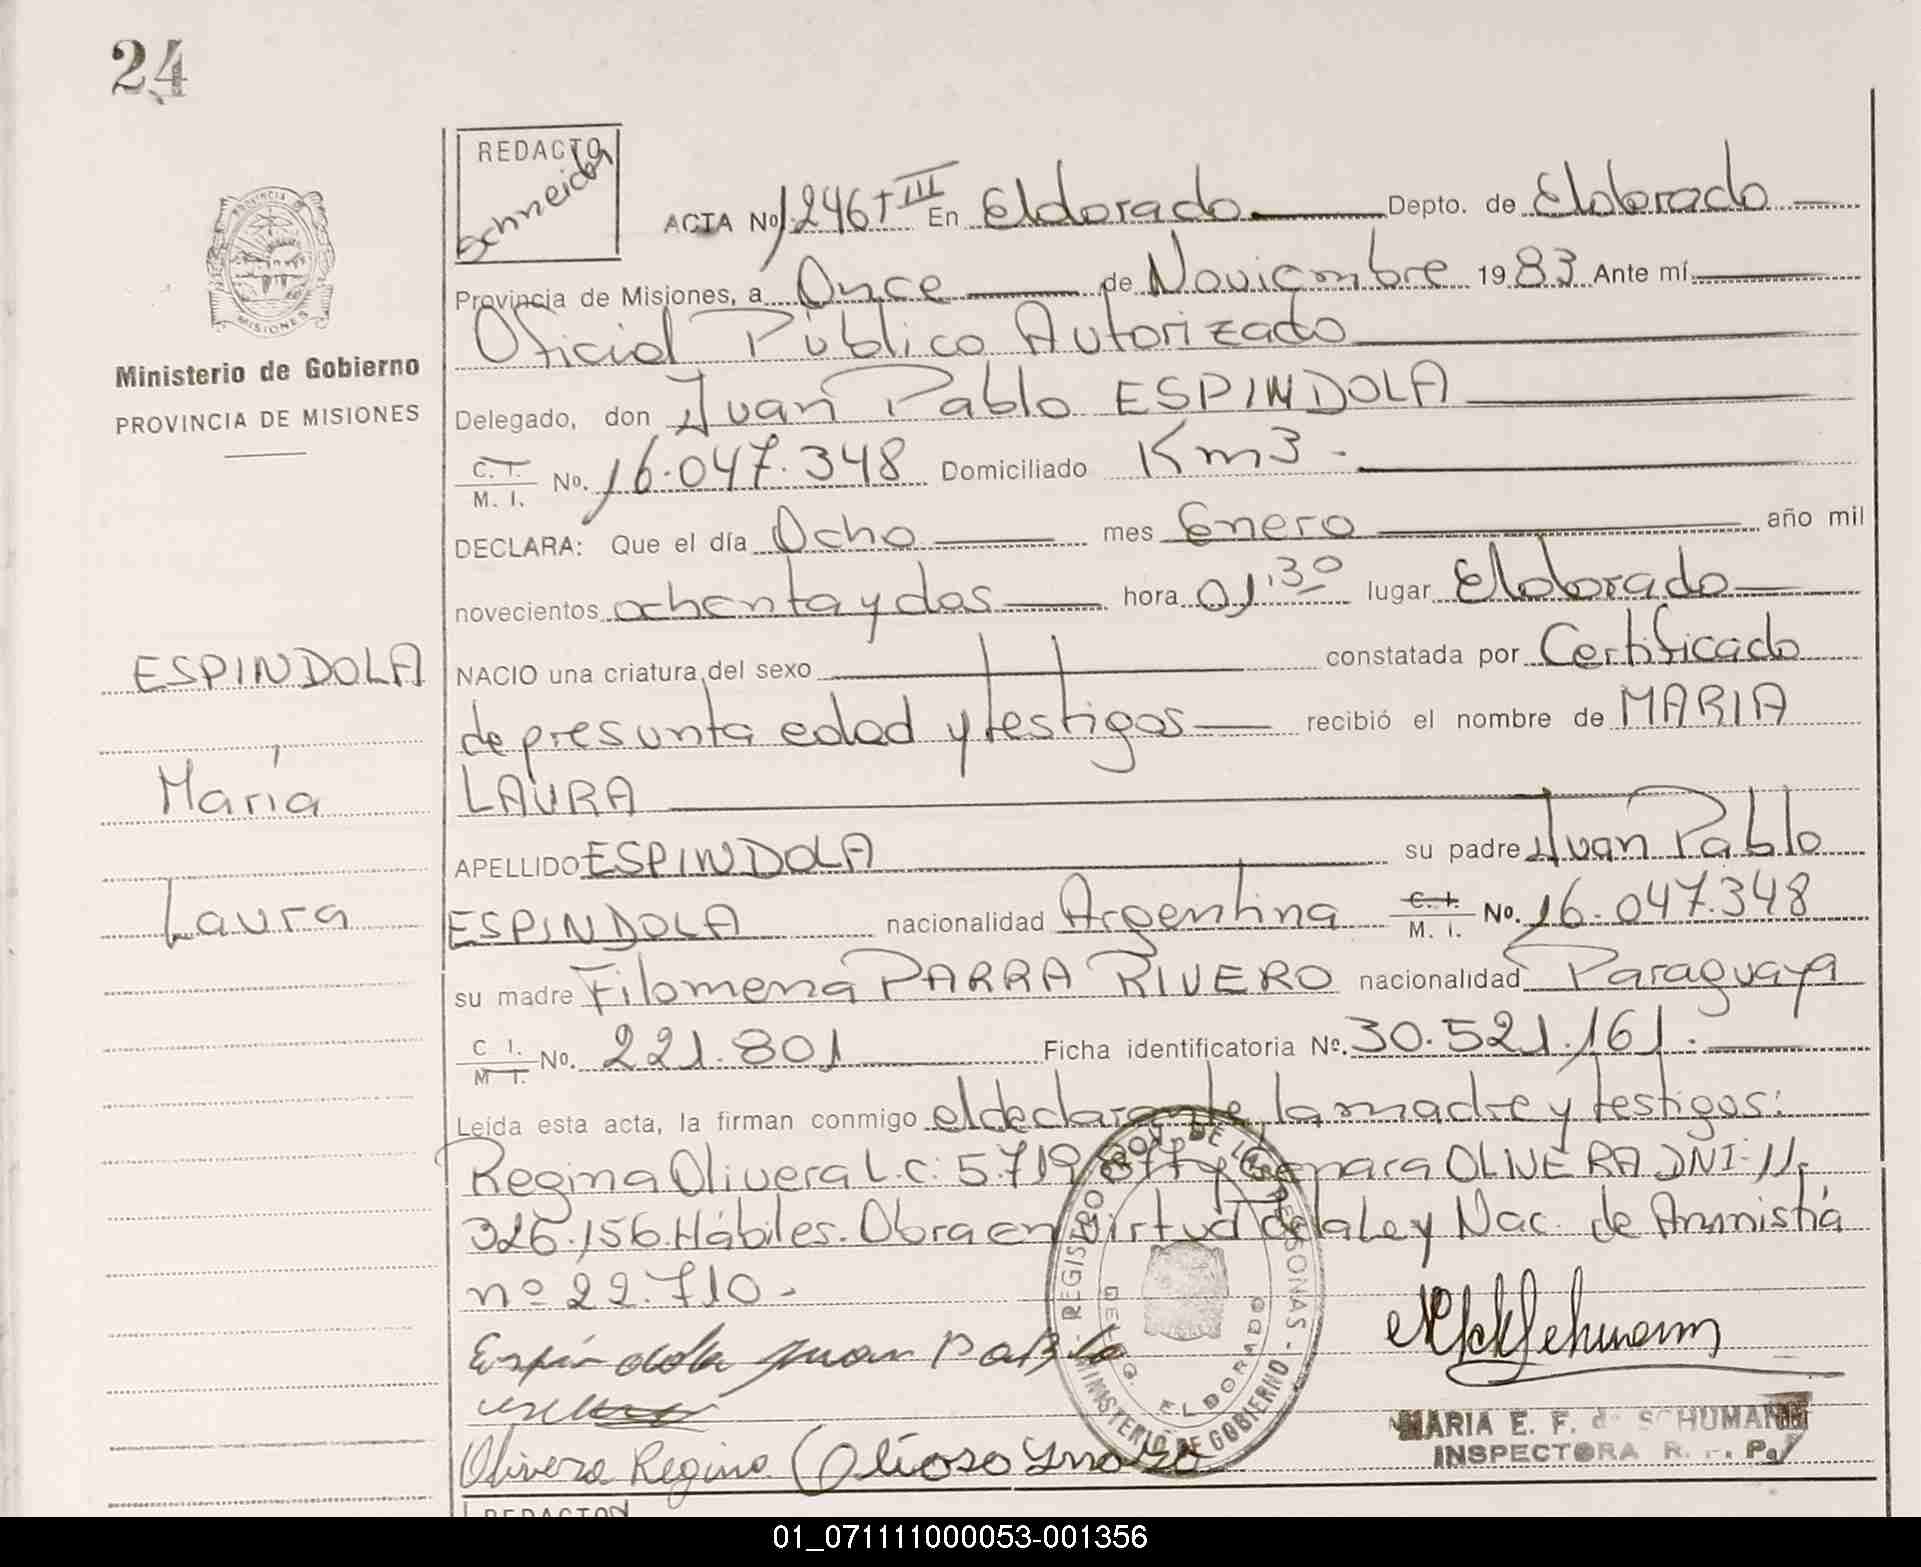 24
REDACTO
Schneider
PROVINCIA DE
MISIONES
Ministerio de Gobierno
PROVINCIA DE MISIONES
ESPINDOLA
María
Laura
ACTA No 1.246 T III En Eldorado Depto. de Eldorado
Provincia de Misiones, a Once de Noviembre 1983 Ante mí
Oficial Público Autorizado
Delegado, don Juan Pablo ESPINDOLA
C. I. M. I. No. 16.047.348 Domiciliado Km 3.
DECLARA: Que el día Ocho mes Enero año mil
novecientos ochenta y dos hora 01,30 lugar Eldorado
NACIO una criatura del sexo constatada por Certificado
de presunta edad y testigos recibió el nombre de MARIA
LAURA
APELLIDO ESPINDOLA su padre Juan Pablo
ESPINDOLA nacionalidad Argentina C. I. M. I. No. 16.047.348
su madre Filomena PARRA RIVERO nacionalidad Paraguaya
C I. M I. No. 221.801 Ficha identificatoria No. 30.521.161.
Leída esta acta, la firman conmigo el declarante, la madre y testigos:
Regina Olivera L.C: 5.719. y OLIVERA DNI: 11.
326.156 Hábiles. Obra en virtud de la Ley Nac. de Amnistía
nº 22.710.
Espindola Juan Pablo
Olivera Regina
REGISTRO PROV. DE LAS PERSONAS - MINISTERIO DE GOBIERNO -
DELEG. ELDORADO
MARIA E. F. de SCHUMANN
INSPECTORA R. P. P.
REDACTOR
01_071111000053-001356